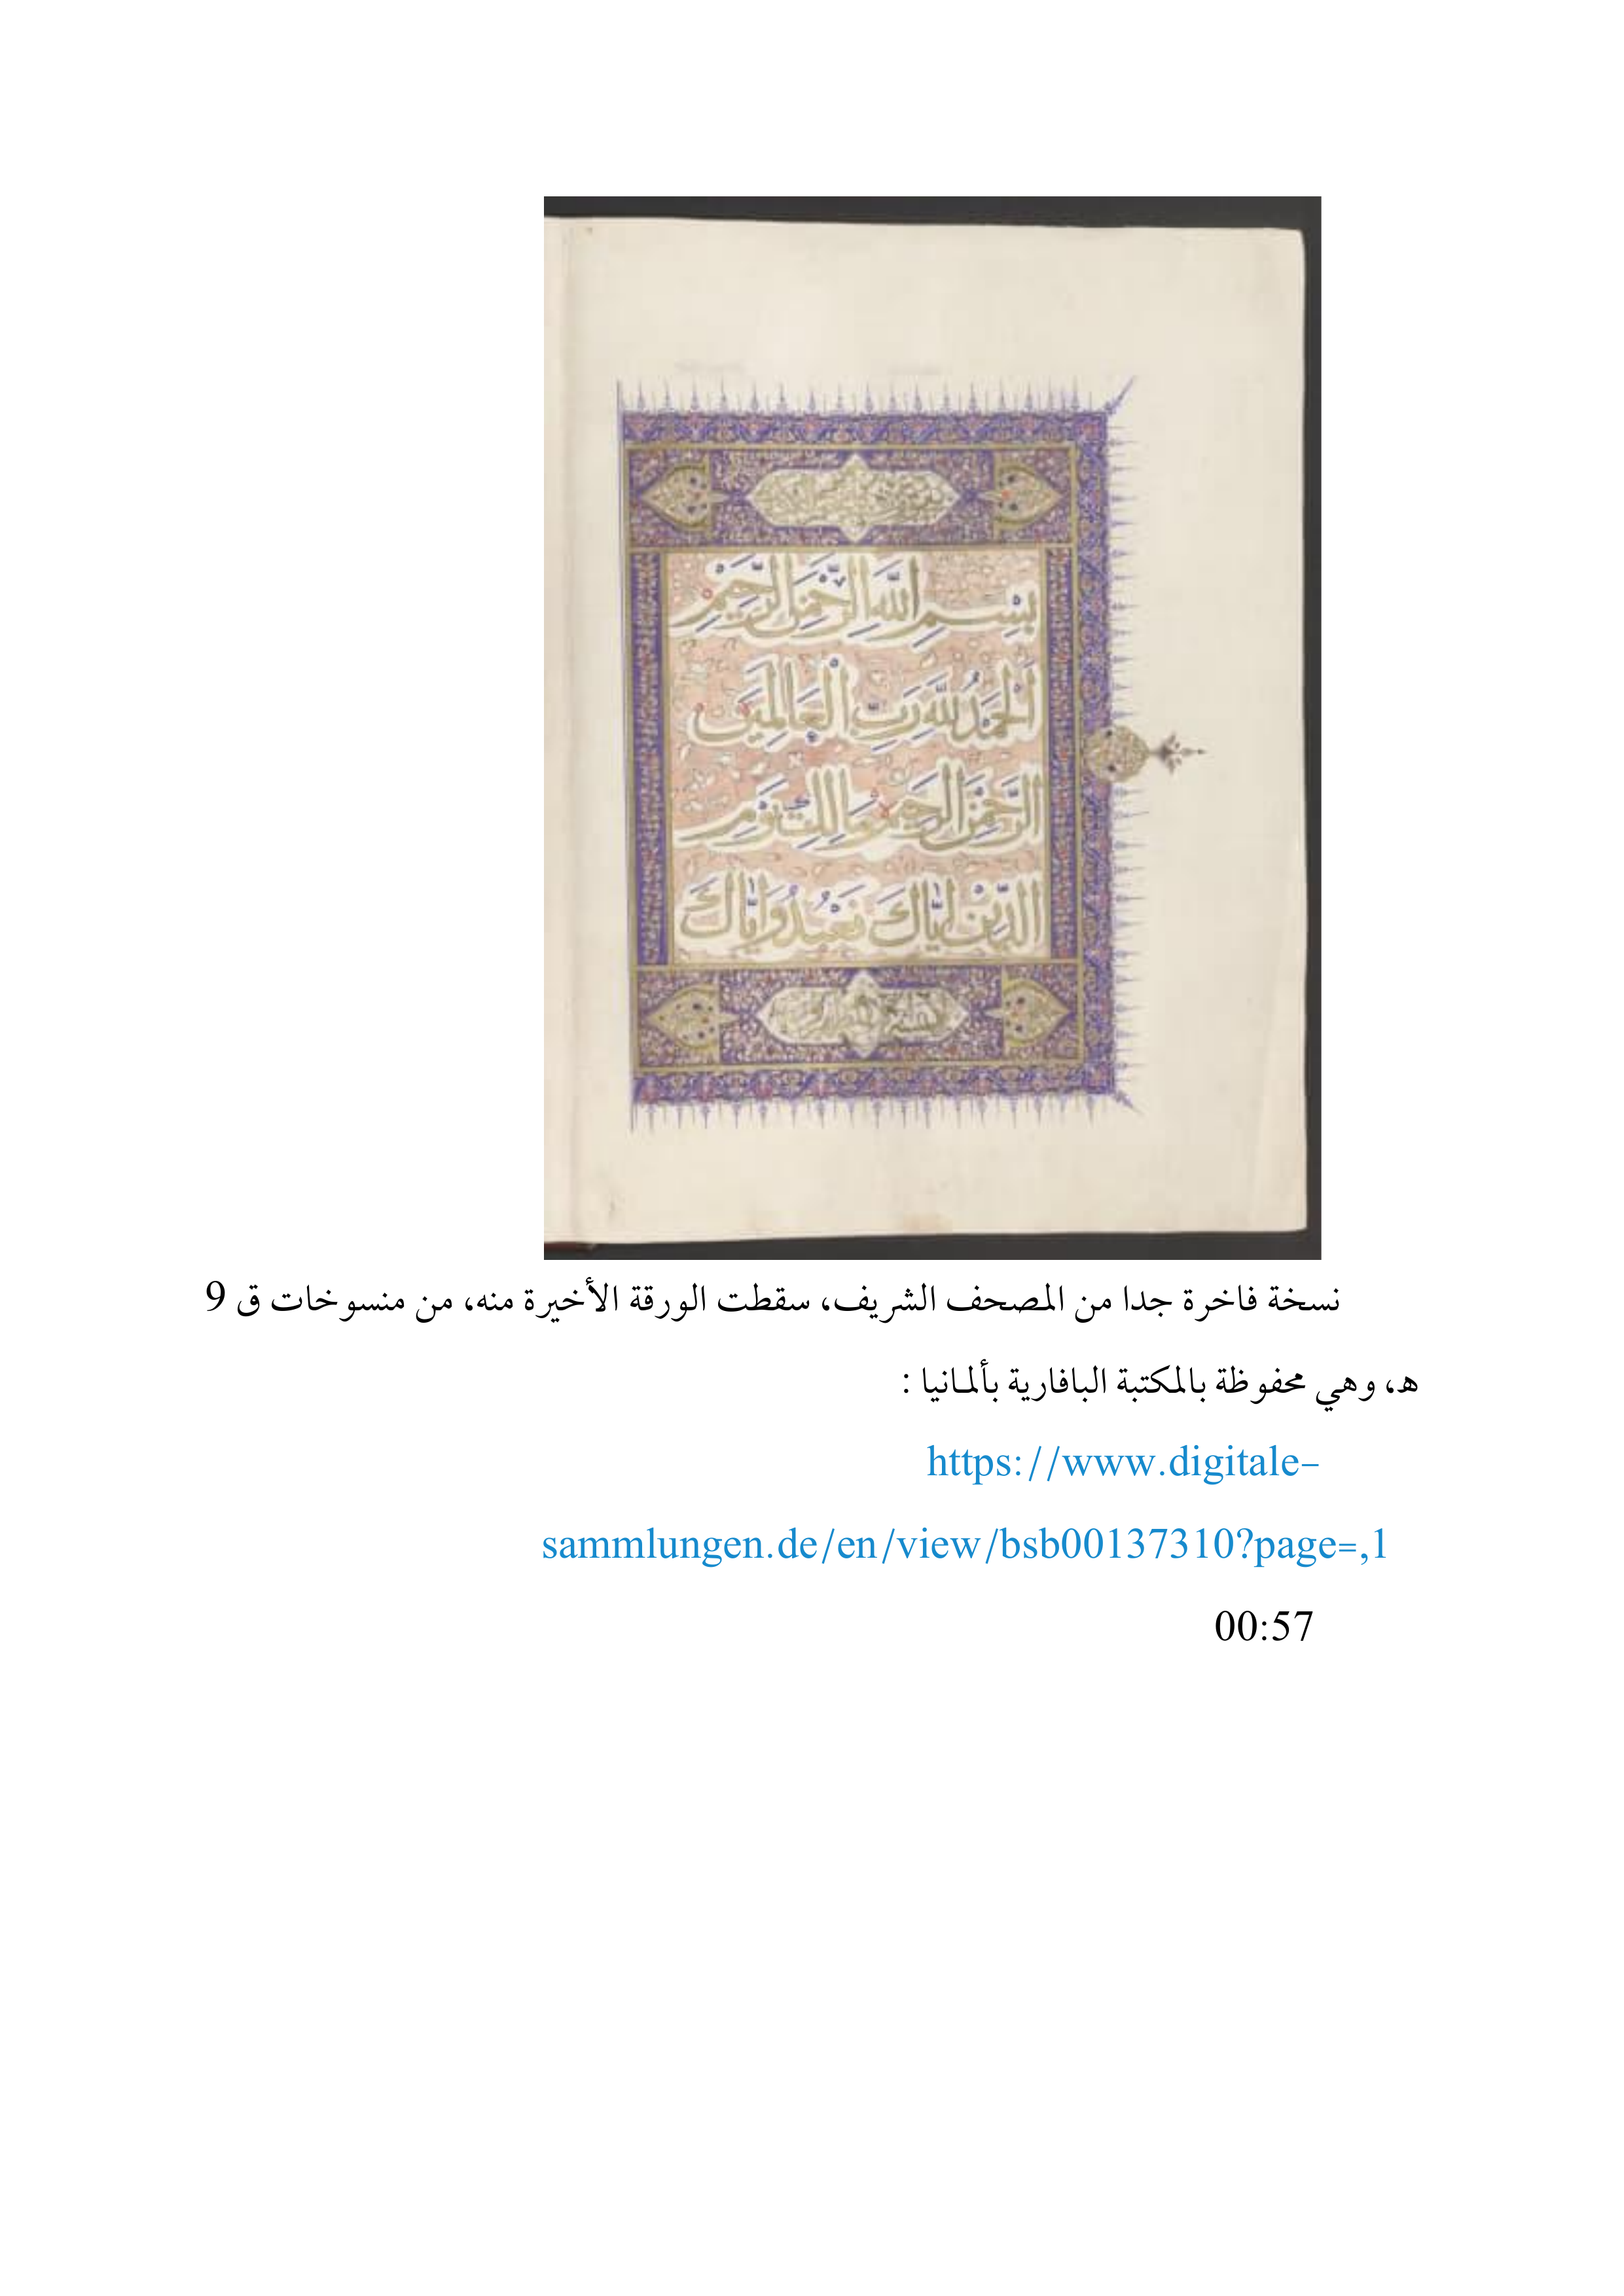 بِسْمِ اللَّهِ الرَّحْمَنِ الرَّحِيمِ
الْحَمْدُ لِلَّهِ رَبِّ الْعَالَمِينَ
الرَّحْمَنِ الرَّحِيمِ مَالِكِ يَوْمِ
الدِّينِ إِيَّاكَ نَعْبُدُ وَإِيَّاكَ
نسخة فاخرة جدا من المصحف الشريف، سقطت الورقة الأخيرة منه، من منسوخات ق 9
هـ، وهي محفوظة بالمكتبة البافارية بألمانيا :
https://www.digitale-
sammlungen.de/en/view/bsb00137310?page=,1
00:57